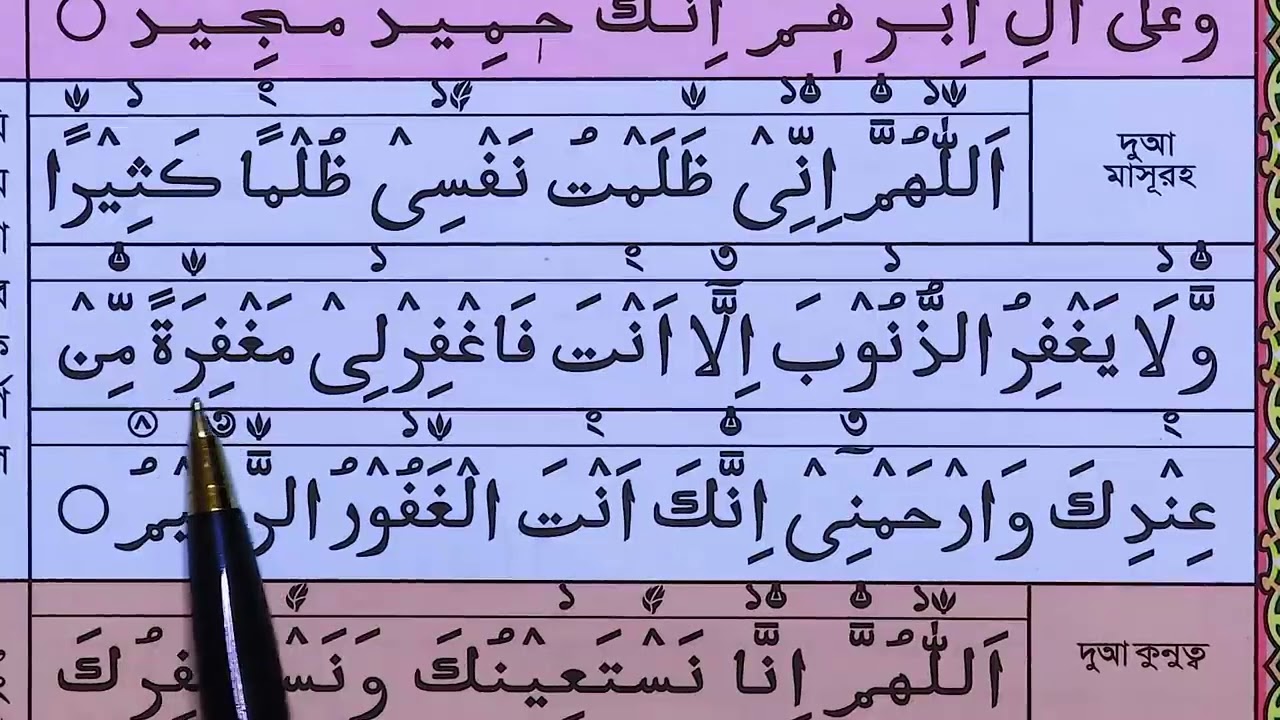 وَعَلٰى اٰلِ اِبْرٰهِيْمَ اِنَّكَ حَمِيْدٌ مَّجِيْدٌ
দুআ
মাসূরহ
اَللّٰهُمَّ اِنِّىْ ظَلَمْتُ نَفْسِىْ ظُلْمًا كَثِيْرًا
وَّلَا يَغْفِرُ الذُّنُوْبَ اِلَّا اَنْتَ فَاغْفِرْلِىْ مَغْفِرَةً مِّنْ
عِنْدِكَ وَارْحَمْنِىْٓ اِنَّكَ اَنْتَ الْغَفُوْرُ
দুআ কুনুত্ব
اَللّٰهُمَّ اِنَّا نَسْتَعِيْنُكَ